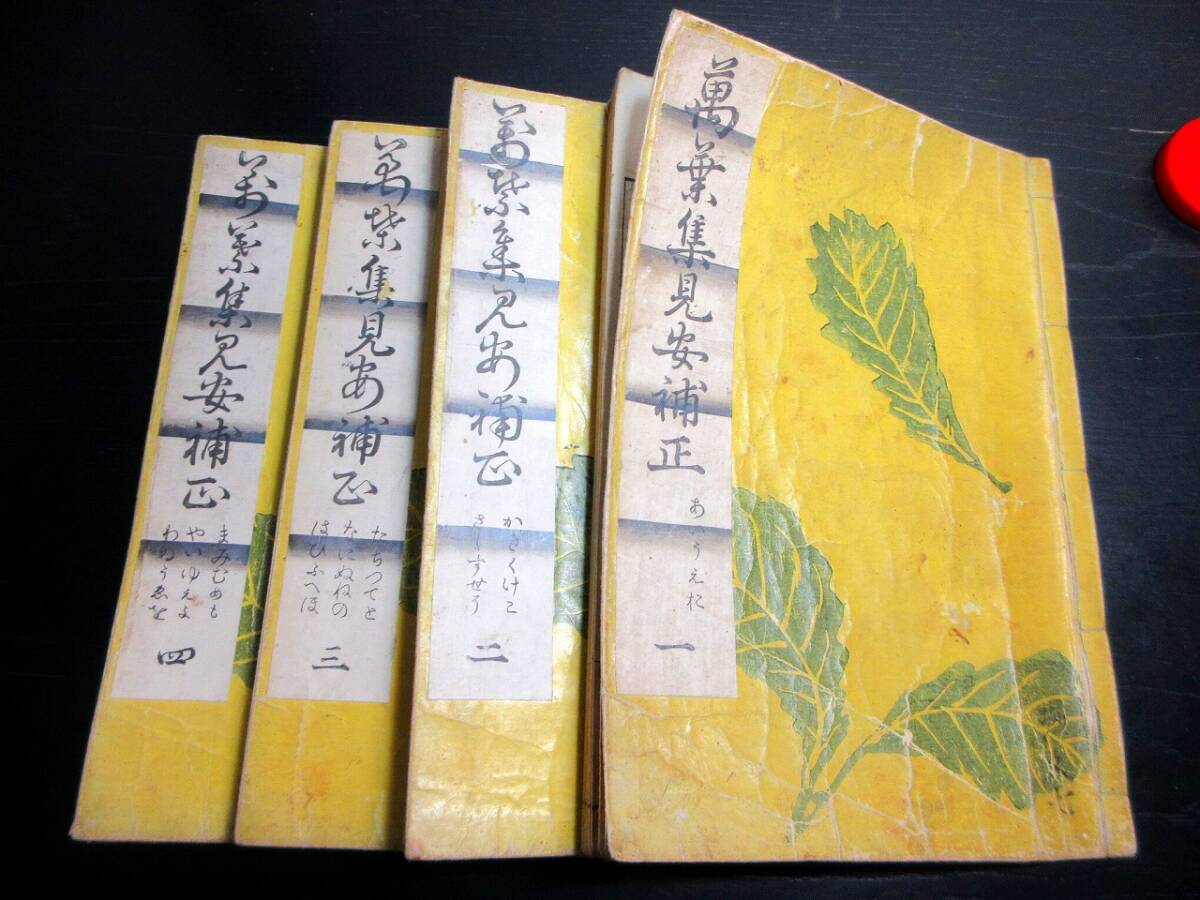 萬葉集見安補正
あいうえお
一
万葉集見安補正
かきくけこ
さしすせそ
二
万葉集見安補正
たちつてと
なにぬねの
はひふへほ
三
万葉集見安補正
まみむめも
やいゆえよ
わゐうゑを
四